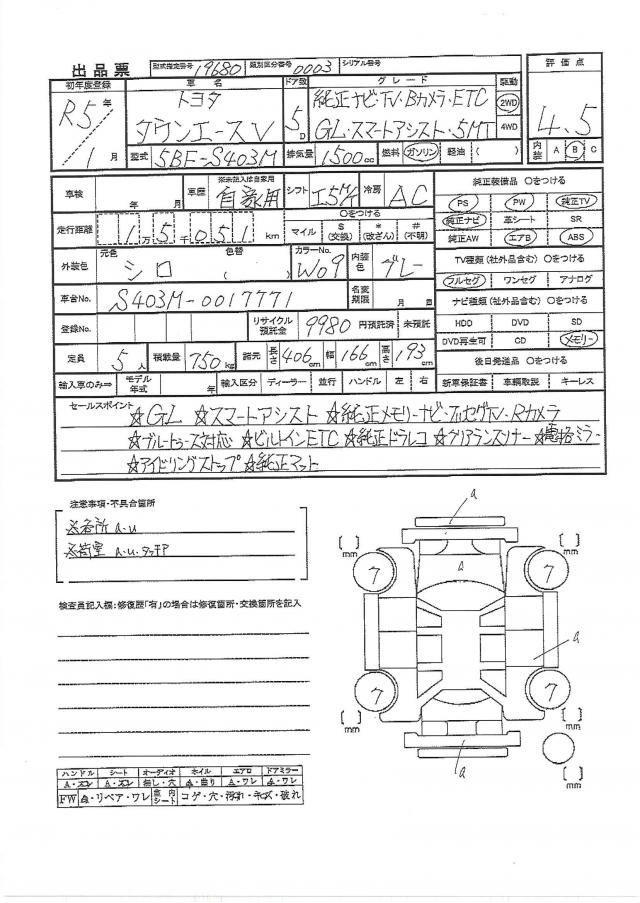 出品票 型式指定番号 19680 類別区分番号 0003 シリアル番号
初年度登録 車名 ドア数 グレード 駆動 評価点
R5年 トヨタ 純正ナビ・TV・Bカメラ・ETC 2WD
1月 タウンエースV 5D GL・スマートアシスト・5MT 4WD 4.5
型式 5BF-S403M 排気量 1500cc 燃料 ガソリン 軽油 ( ) 内装 A B C
車検 年 月 車歴 ※未記入は自家用 自家用 シフト 冷房 AC 純正装備品 〇をつける
PS PW 純正TV
走行距離 1万5千051km 〇をつける マイル $(交換) *(改ざん) #(不明) 純正ナビ 革シート SR
純正AW エアB ABS
外装色 元色 シロ 色替 ( ) カラーNo. W09 内装色 グレー TV種類(社外品含む) 〇をつける
フルセグ ワンセグ アナログ
車台No. S403M-0017771 名変期限 月 日 ナビ種類(社外品含む) 〇をつける
登録No. リサイクル預託金 9980 円預託済 未預託 HDD DVD SD
DVD再生可 CD メモリー
定員 5人 積載量 750kg 諸元 長さ 406cm 幅 166cm 高さ 193cm 後日発送品 〇をつける
輸入車のみ⇒ モデル年式 年 輸入区分 ディーラー 並行 ハンドル 左 右 新車保証書 車輌取説 キーレス
セールスポイント ☆GL ☆スマートアシスト ☆純正メモリーナビ・フルセグTV・Rカメラ
☆ブルートゥース対応 ☆ビルトインETC ☆純正ドラレコ ☆クリアランスソナー ☆電格ミラー
☆アイドリングストップ ☆純正マット
注意事項・不具合箇所
※各所 a.u
※荷室 a.u.タッチP
検査員記入欄:修復歴「有」の場合は修復箇所・交換箇所を記入
a
[ ] mm [ ] mm
7 a 7
a
7 7
[ ] mm [ ] mm
a
[ ] mm
ハンドル シート オーディオ ホイル エアロ ドアミラー
A・スレ A・スレ 無し・穴 A・曲り A・ワレ A・ワレ
FW A・リペア・ワレ 室内シート コゲ・穴・汚れ・キズ・破れ